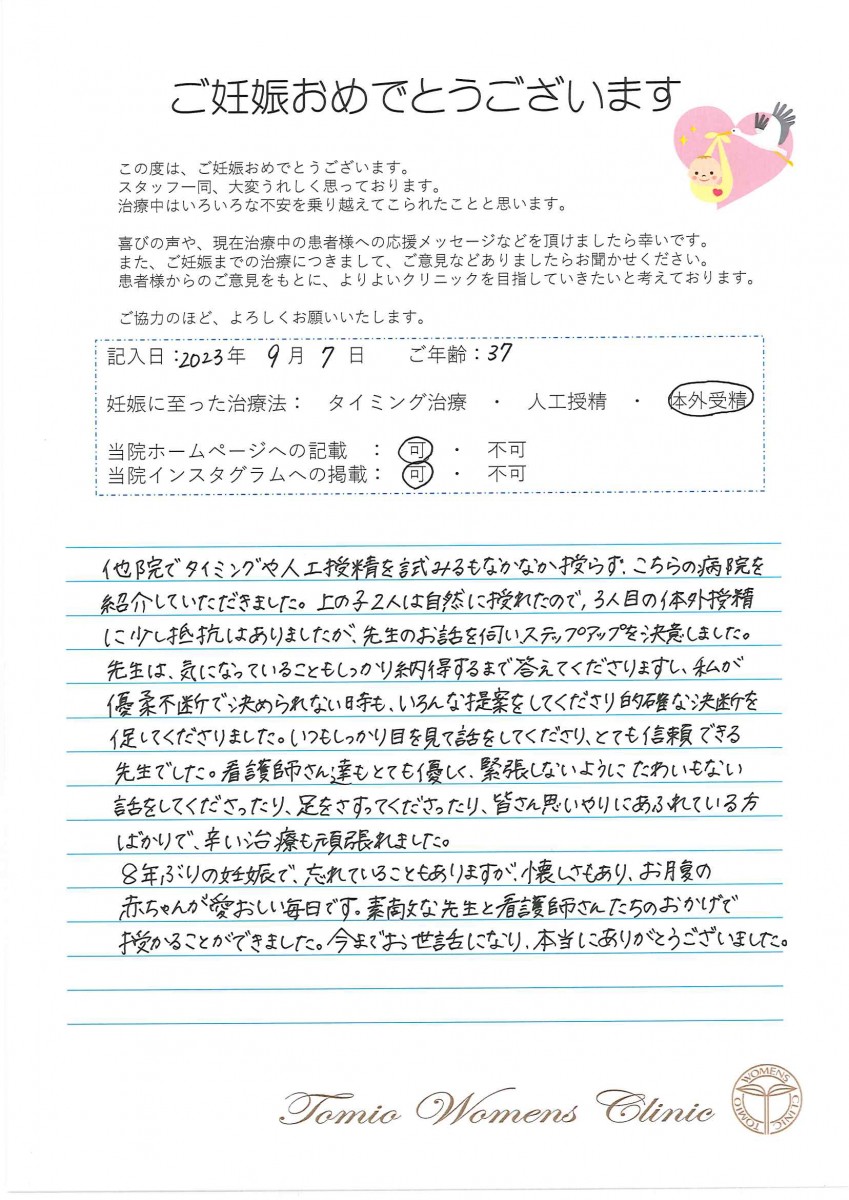 ご妊娠おめでとうございます
この度は、ご妊娠おめでとうございます。
スタッフ一同、大変うれしく思っております。
治療中はいろいろな不安を乗り越えてこられたことと思います。
喜びの声や、現在治療中の患者様への応援メッセージなどを頂けましたら幸いです。
また、ご妊娠までの治療につきまして、ご意見などありましたらお聞かせください。
患者様からのご意見をもとに、よりよいクリニックを目指していきたいと考えております。
ご協力のほど、よろしくお願いいたします。
記入日：2023年 9月 7日 ご年齢：37
妊娠に至った治療法： タイミング治療 ・ 人工授精 ・ 体外受精
当院ホームページへの記載 ： 可 ・ 不可
当院インスタグラムへの掲載： 可 ・ 不可
他院でタイミングや人工授精を試みるもなかなか授らず、こちらの病院を
紹介していただきました。上の子2人は自然に授れたので、3人目の体外授精
に少し抵抗はありましたが、先生のお話を伺いステップアップを決意しました。
先生は、気になっていることもしっかり納得するまで答えてくださりますし、私が
優柔不断で決められない時も、いろんな提案をしてくださり的確な決断を
促してくださりました。いつもしっかり目を見て話をしてくださり、とても信頼できる
先生でした。看護師さん達もとても優しく、緊張しないようにたわいもない
話をしてくださったり、足をさすってくださったり、皆さん思いやりにあふれている方
ばかりで、辛い治療も頑張れました。
8年ぶりの妊娠で、忘れていることもありますが、懐しさもあり、お腹の
赤ちゃんが愛おしい毎日です。素敵な先生と看護師さんたちのおかげで
授かることができました。今までお世話になり、本当にありがとうございました。
Tomio Womens Clinic
TOMIO WOMENS CLINIC